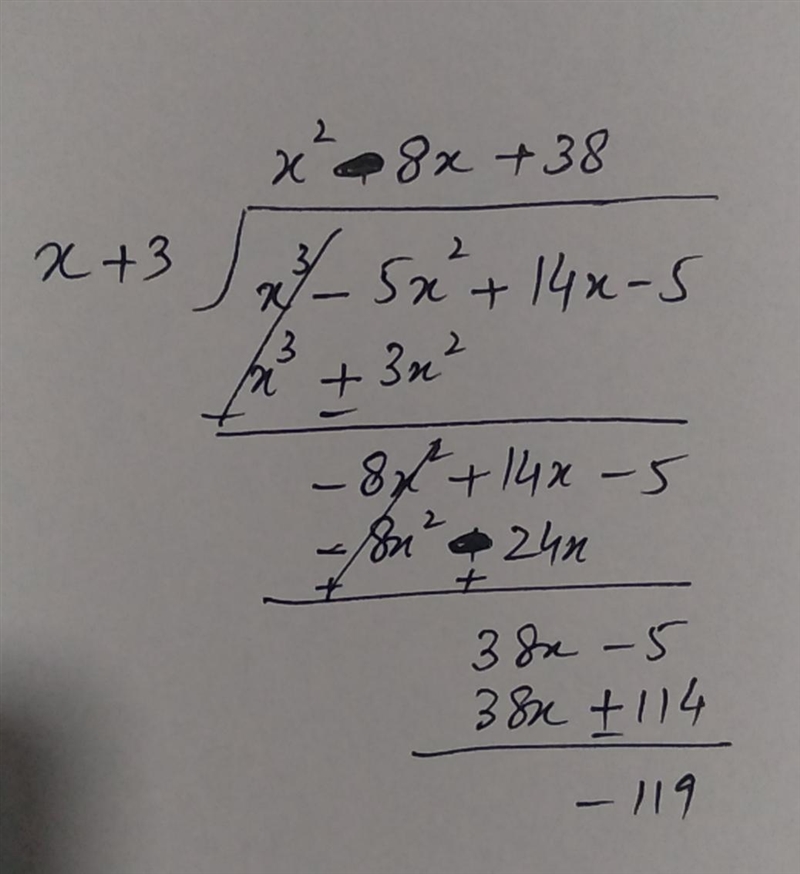 x² - 8x + 38
x + 3 x³ - 5x² + 14x - 5
x³ + 3x²
- -
- 8x² + 14x - 5
- 8x² - 24x
+ +
38x - 5
38x + 114
-
- 119